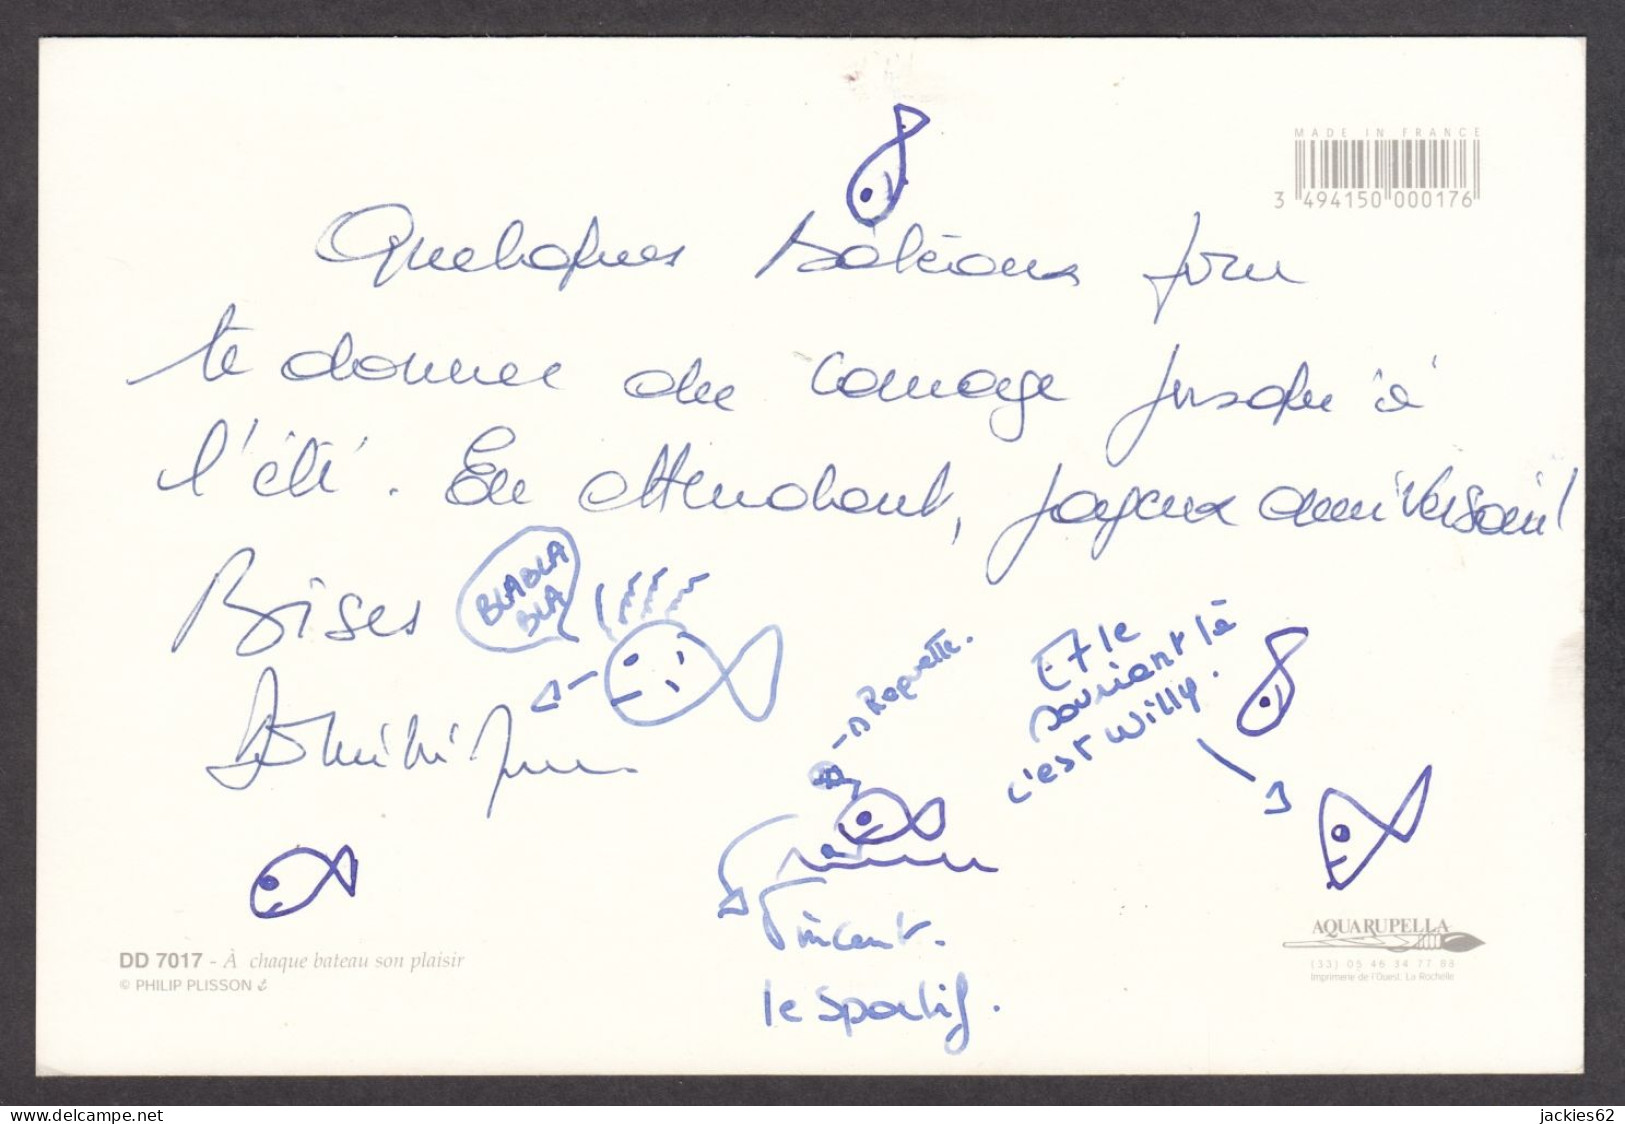 MADE IN FRANCE
3 494150 000176
Quelques bateaux pour
te donner du courage jusqu'à
l'été. En attendant, joyeux anniversaire!
Bises
BLABLA
BLA
Raquette.
Et le
souriant là
c'est Willy.
Vincent.
le sportif.
DD 7017 - À chaque bateau son plaisir
© PHILIP PLISSON
AQUARUPELLA
(33) 05 46 34 77 88
Imprimerie de l'Ouest. La Rochelle
delcampe.net
jackies62